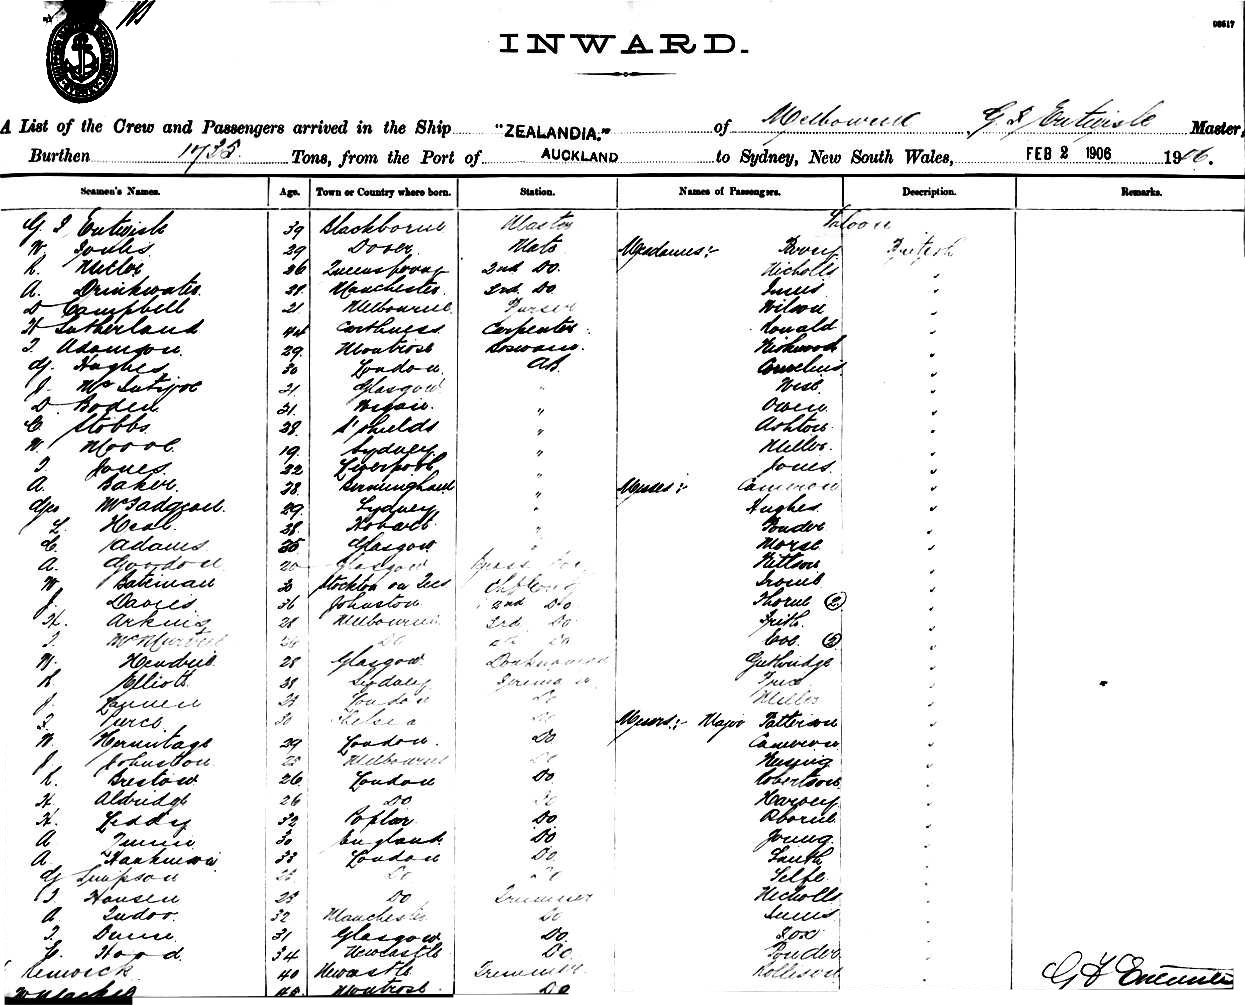 08517
INWARD.
A List of the Crew and Passengers arrived in the Ship "ZEALANDIA." of Melbourne G F Entwisle Master,
Burthen 1725. Tons, from the Port of AUCKLAND to Sydney, New South Wales, FEB 2 1906 1906.
Seamen's Names. Age. Town or Country where born. Station. Names of Passengers. Description. Remarks.
G F Entwisle 39 Blackburne Master Saloon
W. 29 Dover Mate Mesdames:- British
R. Miller 26 2nd Do. Nicholls "
A. Drinkwater 28 Manchester 3rd Do Innes "
D Campbell 21 Melbourne Purser Wilson "
H Sutherland 44 Carthness Carpenter Ronald "
T. Adamson 29 Montrose Kirkwood "
G. Hughes 30 London AB Cornelius "
J. 21 Glasgow " West "
D. Boden 31 Wigan " Owen "
C. Stobbs 38 S' Shields " Ashton "
W. Moore 19 Sydney " Miller "
T. Jones 22 Liverpool " Jones "
A. Baker 38 Birmingham " Misses:- Cameron "
Geo McFadgean 29 Sydney " Hughes "
L. Heal 38 Hobart " Ponder "
C. Adams 35 Glasgow " Morse "
A. Goodon 20 Glasgow "
W Bateman 30 Stockton on Tees "
J. Davies 36 Johnston 2nd Do Thorne (2) "
H. Arkins 28 Melbourne 3rd Do Frith "
T. Do 4th Do Coe "
W. Hendrie 28 Glasgow Donkeyman Guthridge "
R Elliott 38 Sydney Fireman "
J. London Do Miller "
T. Pierce 30 Chelsea Do Messrs:- Major Patterson "
W. Hermitage 29 London. Do Cameron "
J. Johnston 25 Melbourne Do "
R. Brestow 26 London Do Robertson "
H. Aldridge 26 Do Do Harvey "
H. Liddy 32 Poplar Do "
A 30 England Do Young "
A Hankinson 33 London Do "
G Simpson Do Do Selfe "
T. Hansen 25 Do Trimmer Nicholls "
A. Tudor. 32 Manchester Do Innes "
T. Dunn 31 Glasgow Do Fox "
C. Hood 34 Newcastle Do Ponder "
Renwick 40 Newcastle Trimmer Rolleson "
40 Montrose Do
G F Entwisle